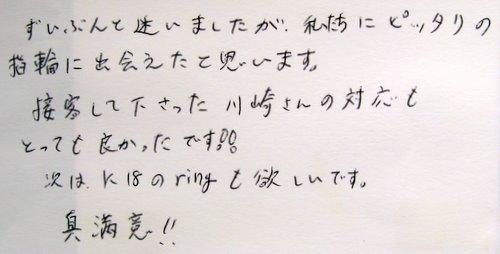 ずいぶんと迷いましたが、私たちにピッタリの
指輪に出会えたと思います。
接客して下さった川崎さんの対応も
とっても良かったです!!
次は、K18のringも欲しいです。
真満意!!